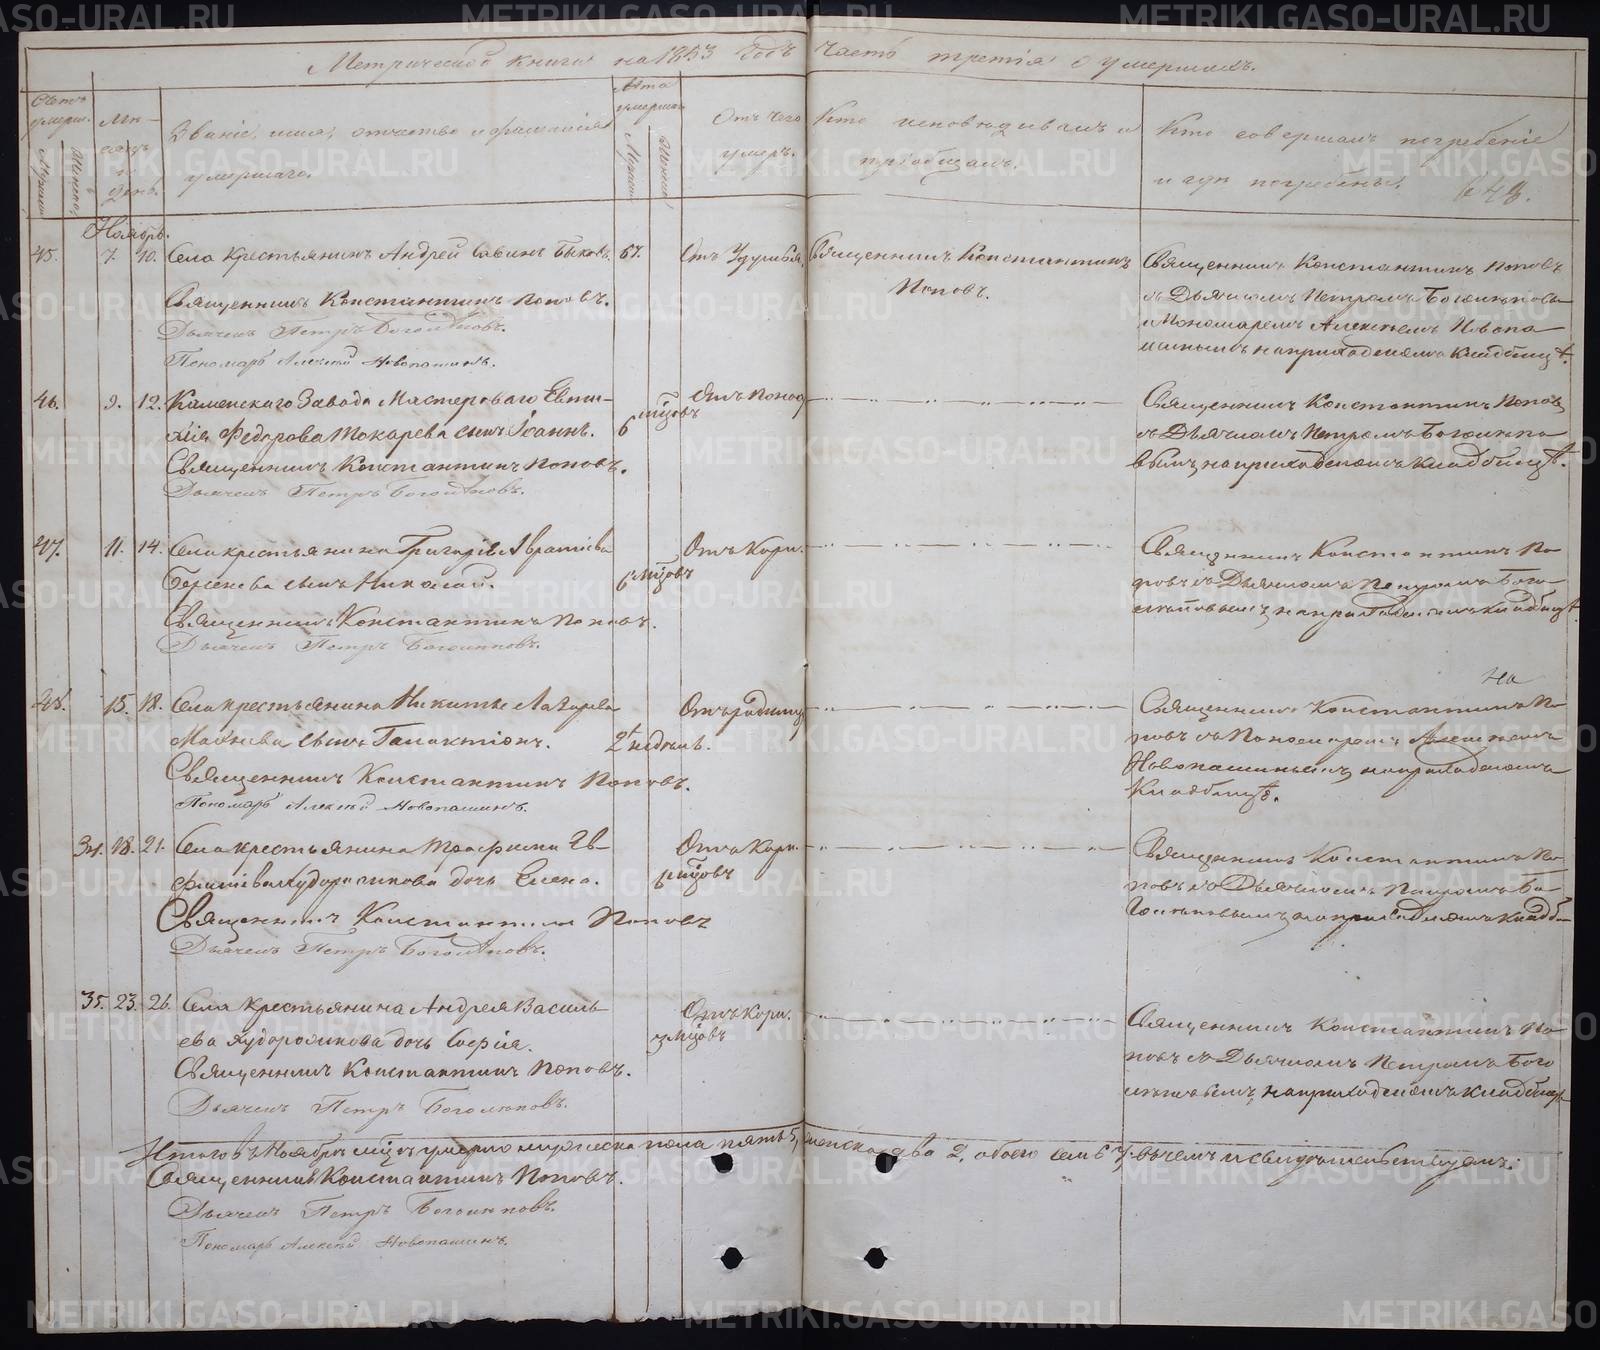 Метрической книги на 1853 годъ часть третія о умершихъ.
Счетъ умерш.
Мужеска
Женска
Мѣсяцъ и день.
Званіе, имя, отчество и фамилія умершаго.
Лѣта умершаго
Мужеска
Женска
Отъ чего умеръ.
Кто исповѣдывалъ и пріобщалъ.
Кто совершалъ погребеніе и гдѣ погребены.
Ноябрь.
45. 7. 10. Села крестьянинъ Андрей Савинъ Быковъ. 67. Отъ Священникъ Константинъ Поповъ.
Священникъ Константинъ Поповъ
съ Дьячкомъ Петромъ
и Пономаремъ Алексѣемъ Новопа
шинымъ на приходскомъ кладбищѣ.
Священникъ Константинъ Поповъ.
Дьячекъ Петръ Боголѣповъ.
Пономарь Алексѣй Новопашинъ.
46. 9. 12. Каменскаго Завода Мастероваго Евти-
хія Федорова Токарева сынъ Іоаннъ. 6 мцовъ
Отъ
Священникъ Константинъ Поповъ
съ Дьячкомъ Петромъ Боголѣпо
вымъ, на приходскомъ кладбищѣ.
Священникъ Константинъ Поповъ.
Дьячекъ Петръ Боголѣповъ.
47. 11. 14. Села крестьянина Григорія
сынъ Николай. 6 мцовъ
Отъ Кори.
Священникъ Константинъ По
повъ съ Дьячкомъ Петромъ Бого
лѣповымъ, на приходскомъ кладбищѣ.
Священникъ Константинъ Поповъ.
Дьячекъ Петръ Боголѣповъ.
48. 15. 18. Села крестьянина Никиты Лазарева
сынъ Галактіонъ. 2 недѣль.
Отъ родимц
На
Священникъ Константинъ По
повъ съ Пономаремъ Алексѣемъ
Новопашинымъ, на приходскомъ
Кладбищѣ.
Священникъ Константинъ Поповъ.
Пономарь Алексѣй Новопашинъ.
34. 18. 21. Села крестьянина Трофима Ев
Худорожкова дочь Елена. 6 мцовъ
Отъ Кори.
Священникъ Константинъ По
повъ съ Дьячкомъ Петромъ Бо
голѣповымъ, на приходскомъ кладб
Священникъ Константинъ Поповъ
Дьячекъ Петръ Боголѣповъ.
35. 23. 26. Села крестьянина Андрея Василь
ева Худорожкова дочь Софія. 3 мцовъ
Отъ Кори.
Священникъ Константинъ По
повъ съ Дьячкомъ Петромъ Бого
лѣповымъ, на приходскомъ кладбищѣ
Священникъ Константинъ Поповъ.
Дьячекъ Петръ Боголѣповъ.
Итого въ Ноябрѣ мцѣ умерло мужеска пола пять 5, женска два 2, обоего семь 7. въ чемъ и свидѣтельствуемъ:
Священникъ Константинъ Поповъ.
Дьячекъ Петръ Боголѣповъ.
Пономарь Алексѣй Новопашинъ.
METRIKI.GASO-URAL.RU